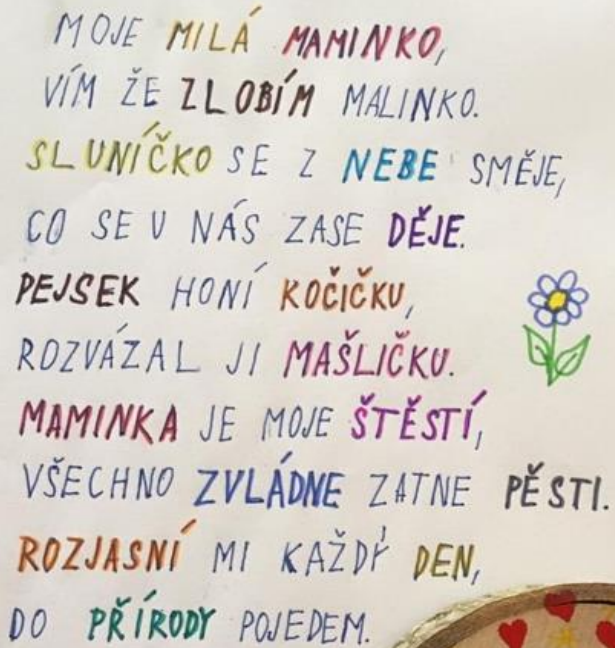 MOJE MILÁ MAMINKO,
VÍM ŽE ZLOBÍM MALINKO.
SLUNÍČKO SE Z NEBE SMĚJE,
CO SE U NÁS ZASE DĚJE.
PEJSEK HONÍ KOČIČKU,
ROZVÁZAL JI MAŠLIČKU.
MAMINKA JE MOJE ŠTĚSTÍ,
VŠECHNO ZVLÁDNE ZATNE PĚSTI.
ROZJASNÍ MI KAŽDÝ DEN,
DO PŘÍRODY POJEDEM.